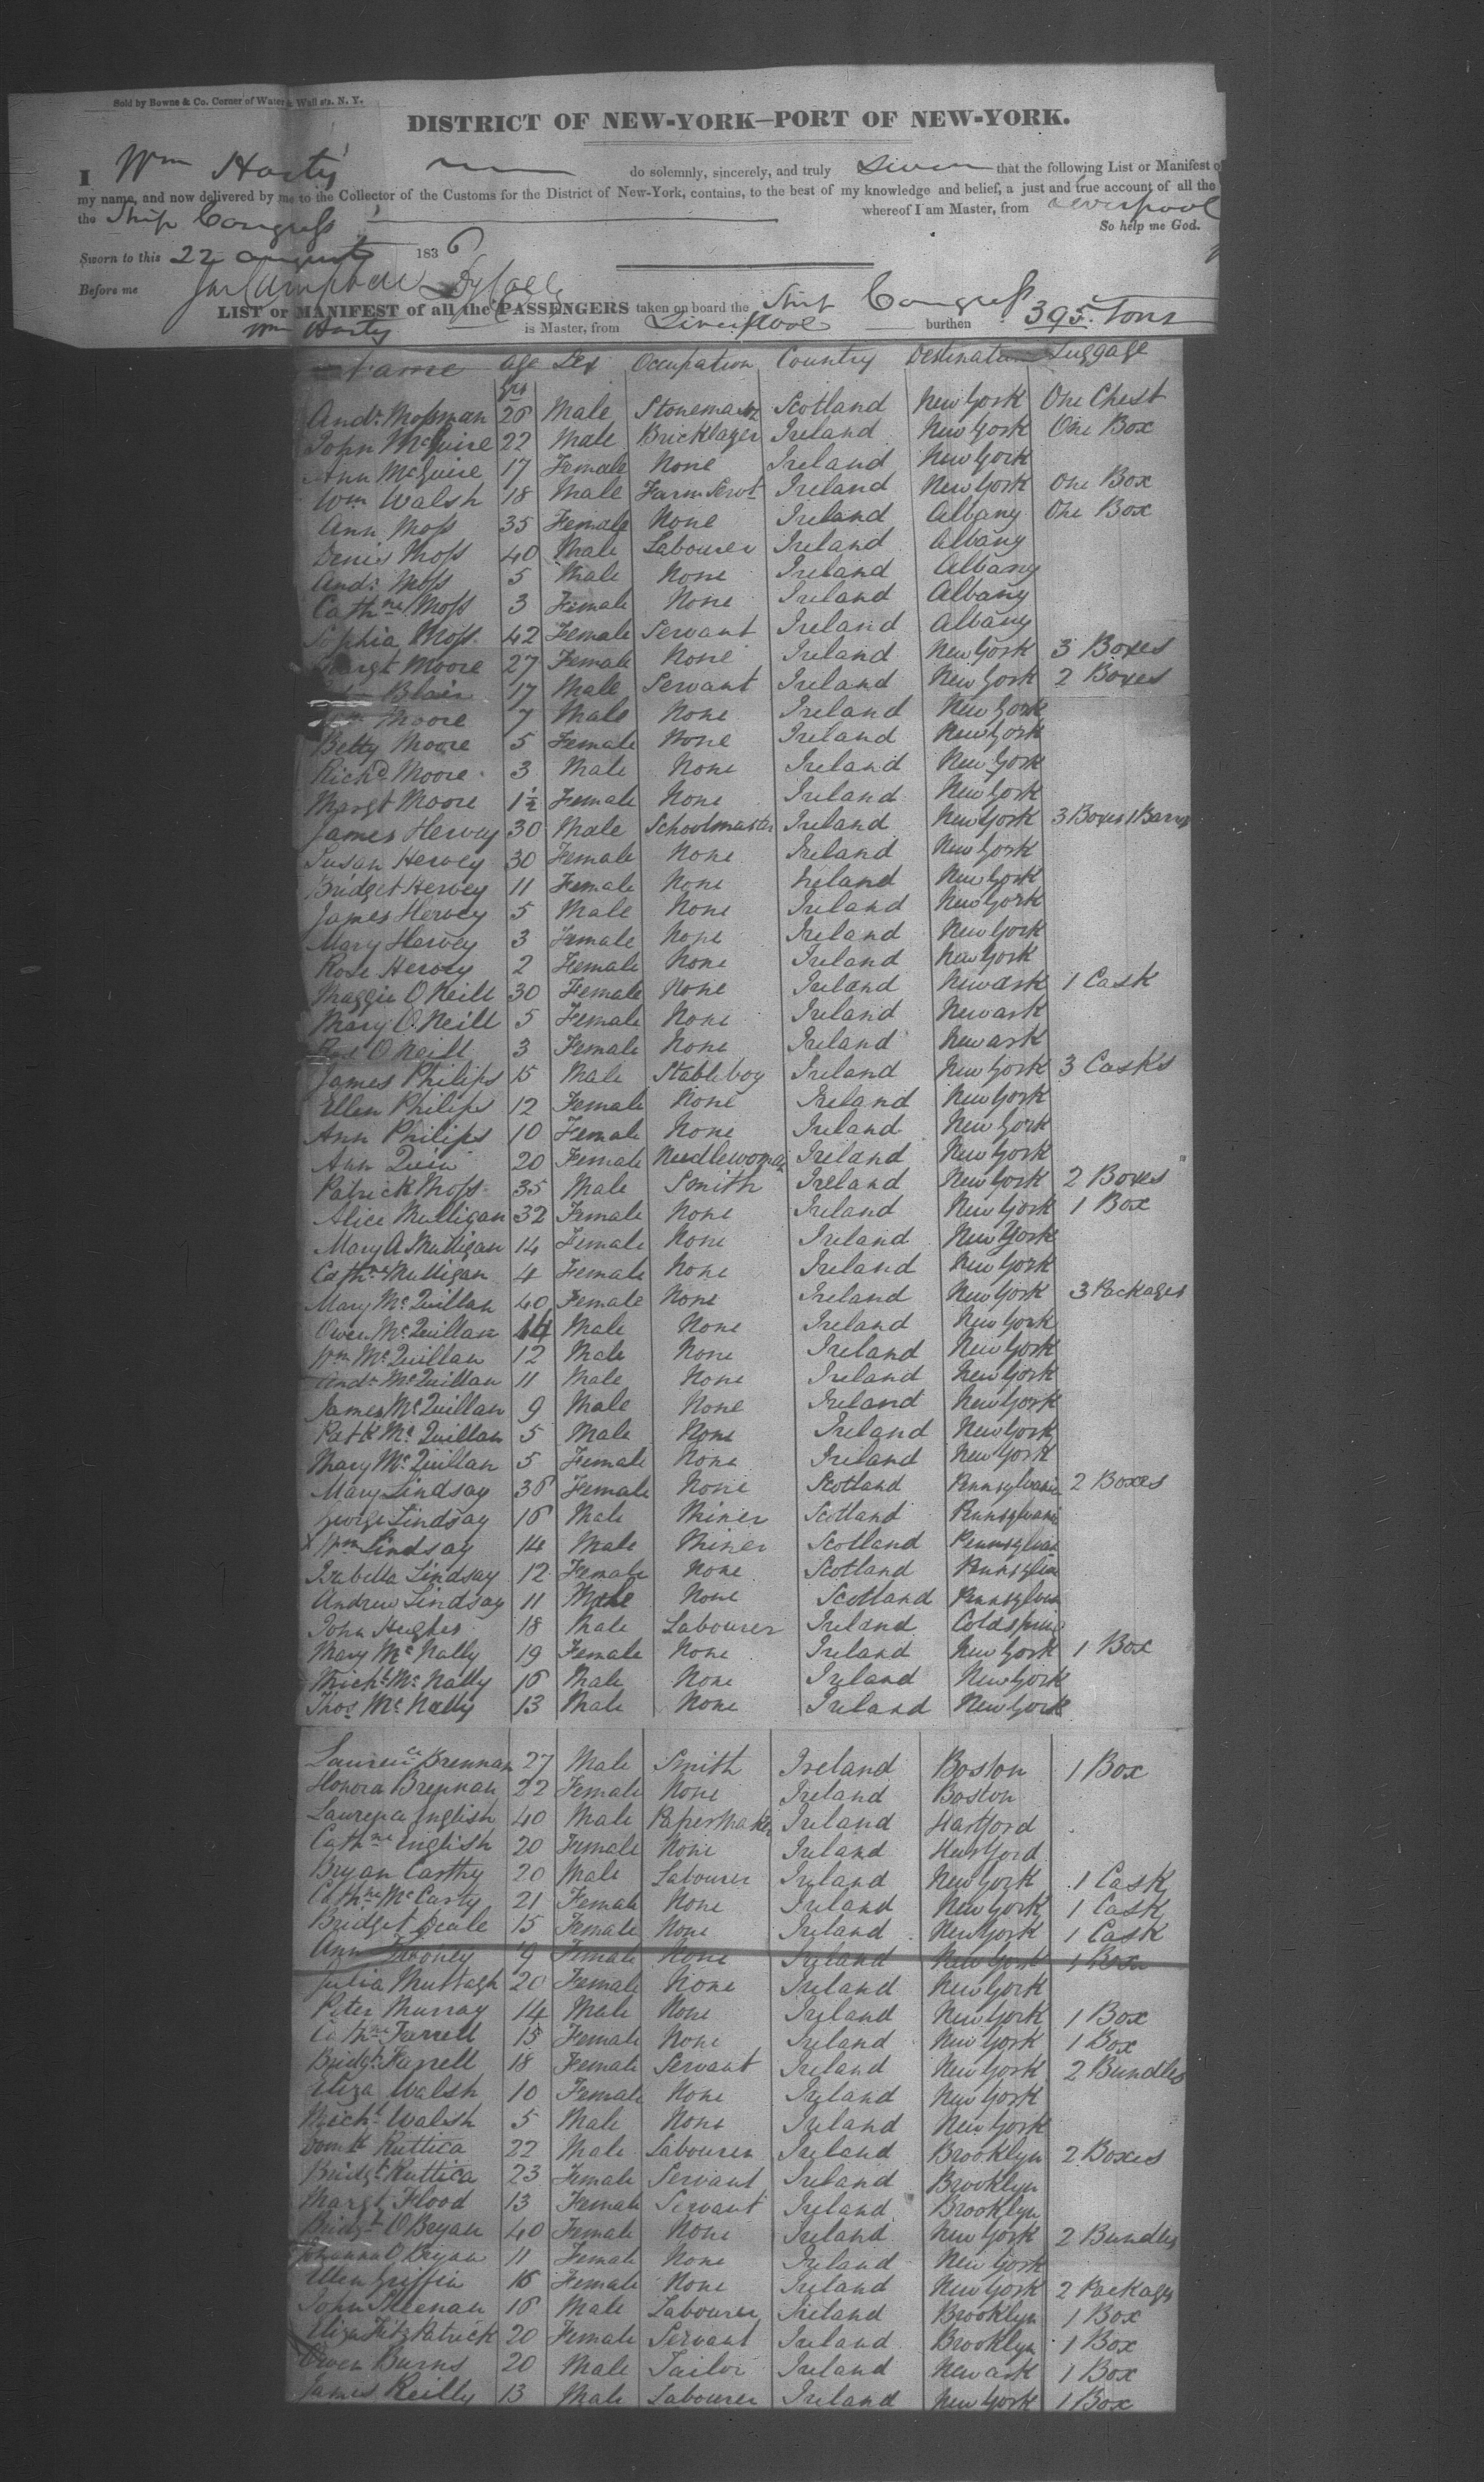 Sold by Bowne & Co. Corner of Water & Wall sts. N. Y.
DISTRICT OF NEW-YORK—PORT OF NEW-YORK.
I Wm Harty do solemnly, sincerely, and truly Swear that the following List or Manifest of
my name, and now delivered by me to the Collector of the Customs for the District of New-York, contains, to the best of my knowledge and belief, a just and true account of all the
the Ship Congress whereof I am Master, from Liverpool
So help me God.
Sworn to this 22 august 1836
Before me Jas Campbell Dy Coll
LIST or MANIFEST of all the PASSENGERS taken on board the Ship Congress
Wm Harty is Master, from Liverpool burthen 395 Tons
Name age Sex Occupation Country Destination Luggage
yrs
Andw Mossman 26 Male Stonemason Scotland New York One Chest
John McGuire 22 Male Bricklayer Ireland New York One Box
Ann McGuire 17 Female None Ireland New York
Wm Walsh 18 Male Farm Servt Ireland New York One Box
Ann Moss 35 Female None Ireland Albany One Box
Denis Moss 40 Male Labourer Ireland Albany
Andw Moss 5 Male None Ireland Albany
Cathne Moss 3 Female None Ireland Albany
Sophia Moss 42 Female Servant Ireland Albany
Margt Moore 27 Female None Ireland New York 3 Boxes
Blair 17 Male Servant Ireland New York 2 Boxes
Moore 7 Male None Ireland New York
Betty Moore 5 Female None Ireland New York
Richd Moore 3 Male None Ireland New York
Margt Moore 1½ Female None Ireland New York
James Hervey 30 Male Schoolmaster Ireland New York 3 Boxes 1 Barrel
Susan Hervey 30 Female None Ireland New York
Bridget Hervey 11 Female None Ireland New York
James Hervey 5 Male None Ireland New York
Mary Hervey 3 Female None Ireland New York
Rose Hervey 2 Female None Ireland New York
Maggie O Neill 30 Female None Ireland Newark 1 Cask
Mary O. Neill 5 Female None Ireland Newark
O Neill 3 Female None Ireland Newark
James Philips 15 Male Stableboy Ireland New York 3 Casks
Ellen Philips 12 Female None Ireland New York
Ann Philips 10 Female None Ireland New York
Ann Quin 20 Female Needlewoman Ireland New York
Patrick Moss 35 Male Smith Ireland New York 2 Boxes
Alice Mulligan 32 Female None Ireland New York 1 Box
Mary A Mulligan 14 Female None Ireland New York
Cathne Mulligan 4 Female None Ireland New York
Mary McQuillan 40 Female None Ireland New York 3 Packages
Owen McQuillan 14 Male None Ireland New York
Wm McQuillan 12 Male None Ireland New York
Andw McQuillan 11 Male None Ireland New York
James McQuillan 9 Male None Ireland New York
Patk McQuillan 5 Male None Ireland New York
Mary McQuillan 5 Female None Ireland New York
Mary Lindsay 36 Female None Scotland Pennsylvania 2 Boxes
George Lindsay 16 Male Miner Scotland Pennsylvania
x Wm Lindsay 14 Male Miner Scotland Pennsylvan
Izabella Lindsay 12 Female None Scotland Pennsylvan
Andrew Lindsay 11 Male None Scotland Pennsylvan
John Hughes 18 Male Labourer Ireland Coldspring
Mary McNally 19 Female None Ireland New York 1 Box
Michl McNally 16 Male None Ireland New York
Thos McNally 13 Male None Ireland New York
Laurence Brennan 27 Male Smith Ireland Boston 1 Box
Honora Brennan 22 Female None Ireland Boston
Laurence English 40 Male Papermaker Ireland Hartford
Cathne English 20 Female None Ireland Hartford
Bryan Carthy 20 Male Labourer Ireland New York 1 Cask
Cathne McCarty 21 Female None Ireland New York 1 Cask
Bridget Beale 15 Female None Ireland New York 1 Cask
Ann 9 Female None Ireland New York 1 Box
Julia Murtagh 20 Female None Ireland New York
Peter Murray 14 Male None Ireland New York 1 Box
Cathne Farrell 15 Female None Ireland New York 1 Box
Bridgt Farrell 18 Female Servant Ireland New York 2 Bundles
Eliza Walsh 10 Female None Ireland New York
Michl Walsh 5 Male None Ireland New York
Domk Ruttica 22 Male Labourer Ireland Brooklyn 2 Boxes
Bridgt Ruttica 23 Female Servant Ireland Brooklyn
Margt Flood 13 Female Servant Ireland Brooklyn
Bridgt O Bryan 40 Female None Ireland New York 2 Bundles
Johanna O Bryan 11 Female None Ireland New York
Ellen Griffin 16 Female None Ireland New York 2 Packages
John Sheenan 16 Male Labourer Ireland Brooklyn 1 Box
Eliza FitzPatrick 20 Female Servant Ireland Brooklyn 1 Box
Owen Burns 20 Male Tailor Ireland Newark 1 Box
James Reilly 13 Male Labourer Ireland New York 1 Box